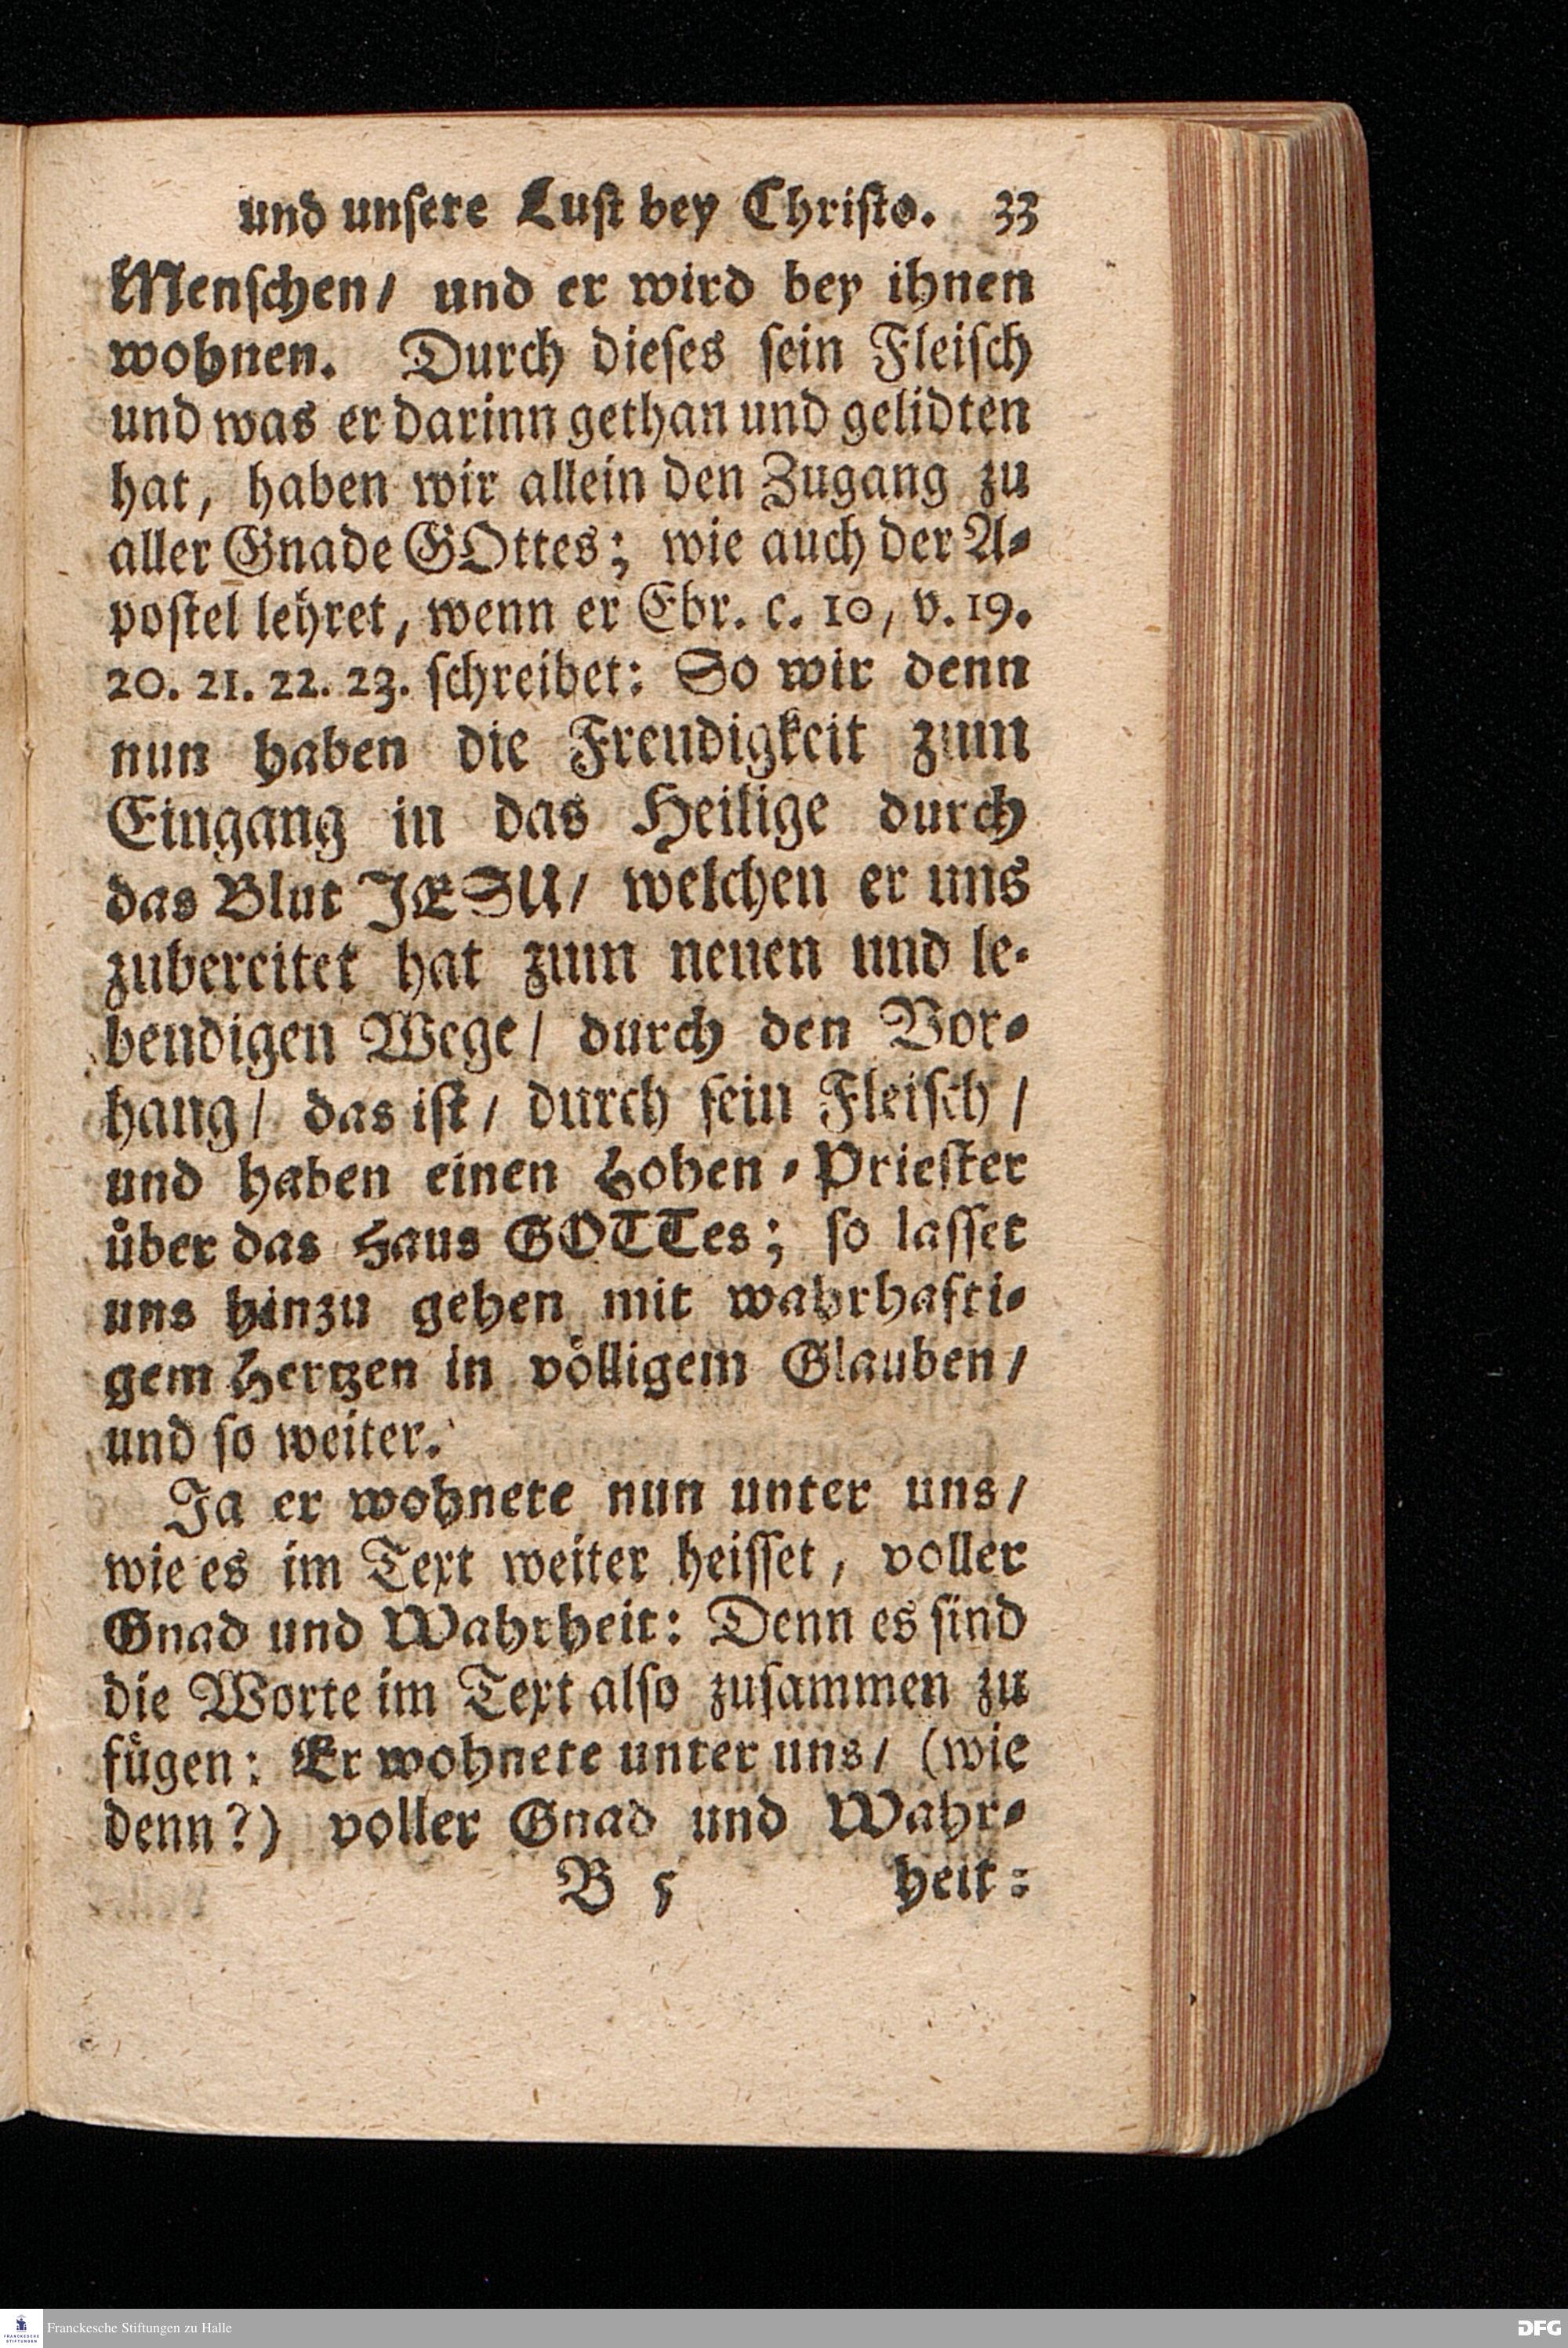 und unsere Lust bey Christo. 33
Menschen/ und er wird bey ihnen
wohnen. Durch dieses sein Fleisch
und was er darinn gethan und gelidten
hat, haben wir allein den Zugang zu
aller Gnade GOttes; wie auch der A-
postel lehret, wenn er Ebr. c. 10, v. 19.
20. 21. 22. 23. schreibet: So wir denn
nun haben die Freudigkeit zum
Eingang in das Heilige durch
das Blut JESU/ welchen er uns
zubereitet hat zum neuen und le-
bendigen Wege/ durch den Vor-
hang/ das ist/ durch sein Fleisch/
und haben einen Hohen-Priester
über das Haus GOTTes; so lasset
uns hinzu gehen mit wahrhafti-
gem Hertzen in völligem Glauben/
und so weiter.
Ja er wohnete nun unter uns/
wie es im Text weiter heisset, voller
Gnad und Wahrheit: Denn es sind
die Worte im Text also zusammen zu
fügen: Er wohnete unter uns/ (wie
denn?) voller Gnad und Wahr-
B 5 heit:
Franckesche Stiftungen zu Halle
FRANCKESCHE STIFTUNGEN
DFG